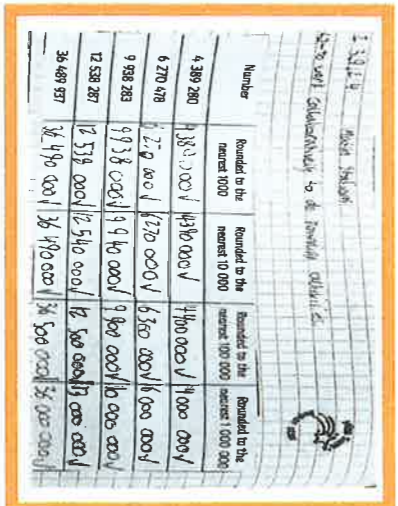 Main Station
Number | Rounded to the nearest 1000 | Rounded to the nearest 10 000 | Rounded to the nearest 100 000 | Rounded to the nearest 1 000 000
4 389 280 | 4 389 000 ✓ | 4390 000 ✓ | 4400 000 ✓ | 4 000 000 ✓
6 270 478 | 6 270 000 ✓ | 6270 000 ✓ | 6 300 000 ✓ | 6 000 000 ✓
9 938 283 | 9938 000 ✓ | 9 940 000 ✓ | 9 900 000 ✓ | 10 000 000 ✓
12 538 287 | 12 538 000 ✓ | 12 540 000 ✓ | 12 500 000 ✓ | 13 000 000 ✓
36 489 937 | 36 490 000 ✓ | 36 490 000 ✓ | 36 500 000 ✓ | 36 000 000 ✓